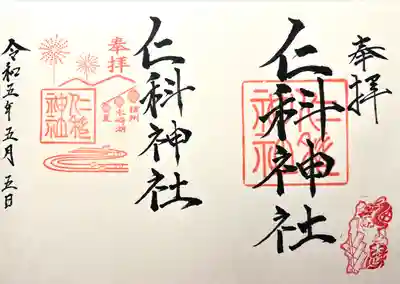 奉拝
仁科神社
仁科神社
仁科神社
奉拝
信州
木崎湖
仁科神社
令和五年五月五日